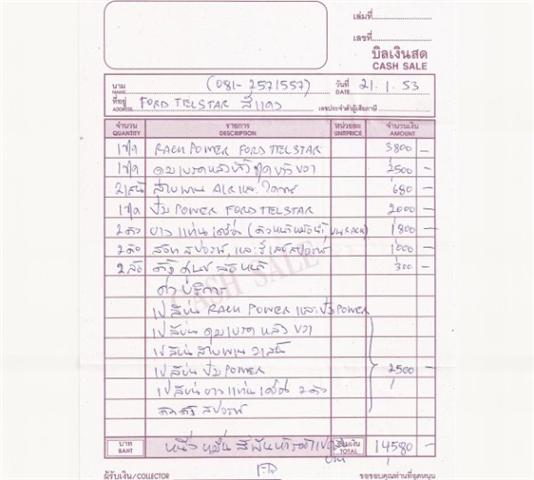 เล่มที่
เลขที่
บิลเงินสด
CASH SALE
นาม
NAME
(081-2571557)
วันที่
DATE
21.1.53
ที่อยู่
ADDRESS
FORD TELSTAR สีแดง
เลขประจำตัวผู้เสียภาษี
จำนวน
QUANTITY
รายการ
DESCRIPTION
หน่วยละ
UNITPRICE
จำนวนเงิน
AMOUNT
1 ชุด RACK POWER FORD TELSTAR 3800 -
1 ชุด 2500 -
2 เส้น สายพาน AIR และ 680 -
1 ชุด ปั๊ม POWER FORD TELSTAR 2000 -
2 ตัว ยางแท่นเครื่อง 1800 -
2 1000 -
2 ล้อ ตั้งศูนย์ ล้อหน้า 300 -
ค่าบริการ
เปลี่ยน RACK POWER และปั๊ม POWER
เปลี่ยน ดุมเบรคหลัง ขวา
เปลี่ยน สายพาน 2 เส้น
เปลี่ยน ปั๊ม POWER 2500 -
เปลี่ยน ยางแท่นเครื่อง 2 ตัว
CASH SALE
บาท
BAHT
หนึ่งหมื่นสี่พันห้าร้อยแปด
รวมเงิน
TOTAL
14580 -
ผู้รับเงิน/COLLECTOR
ขอขอบคุณท่านที่อุดหนุน